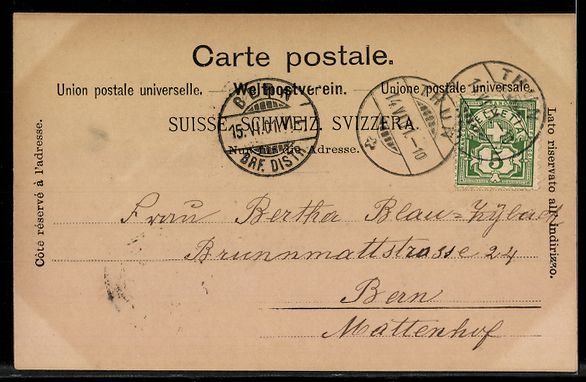 Carte postale.
Union postale universelle. Weltpostverein. Unione postale universale.
SUISSE. SCHWEIZ. SVIZZERA.
Nur für die Adresse.
Côté réservé à l'adresse.
Lato riservato all'indirizzo.
BERN
15.VI.01.VII.
BRF. DISTR.
THUN
14.VI.01.-10
THUN
HELVETIA
5
Frau Bertha Blau=Zybach
Brunnmattstrasse 24
Bern
Mattenhof